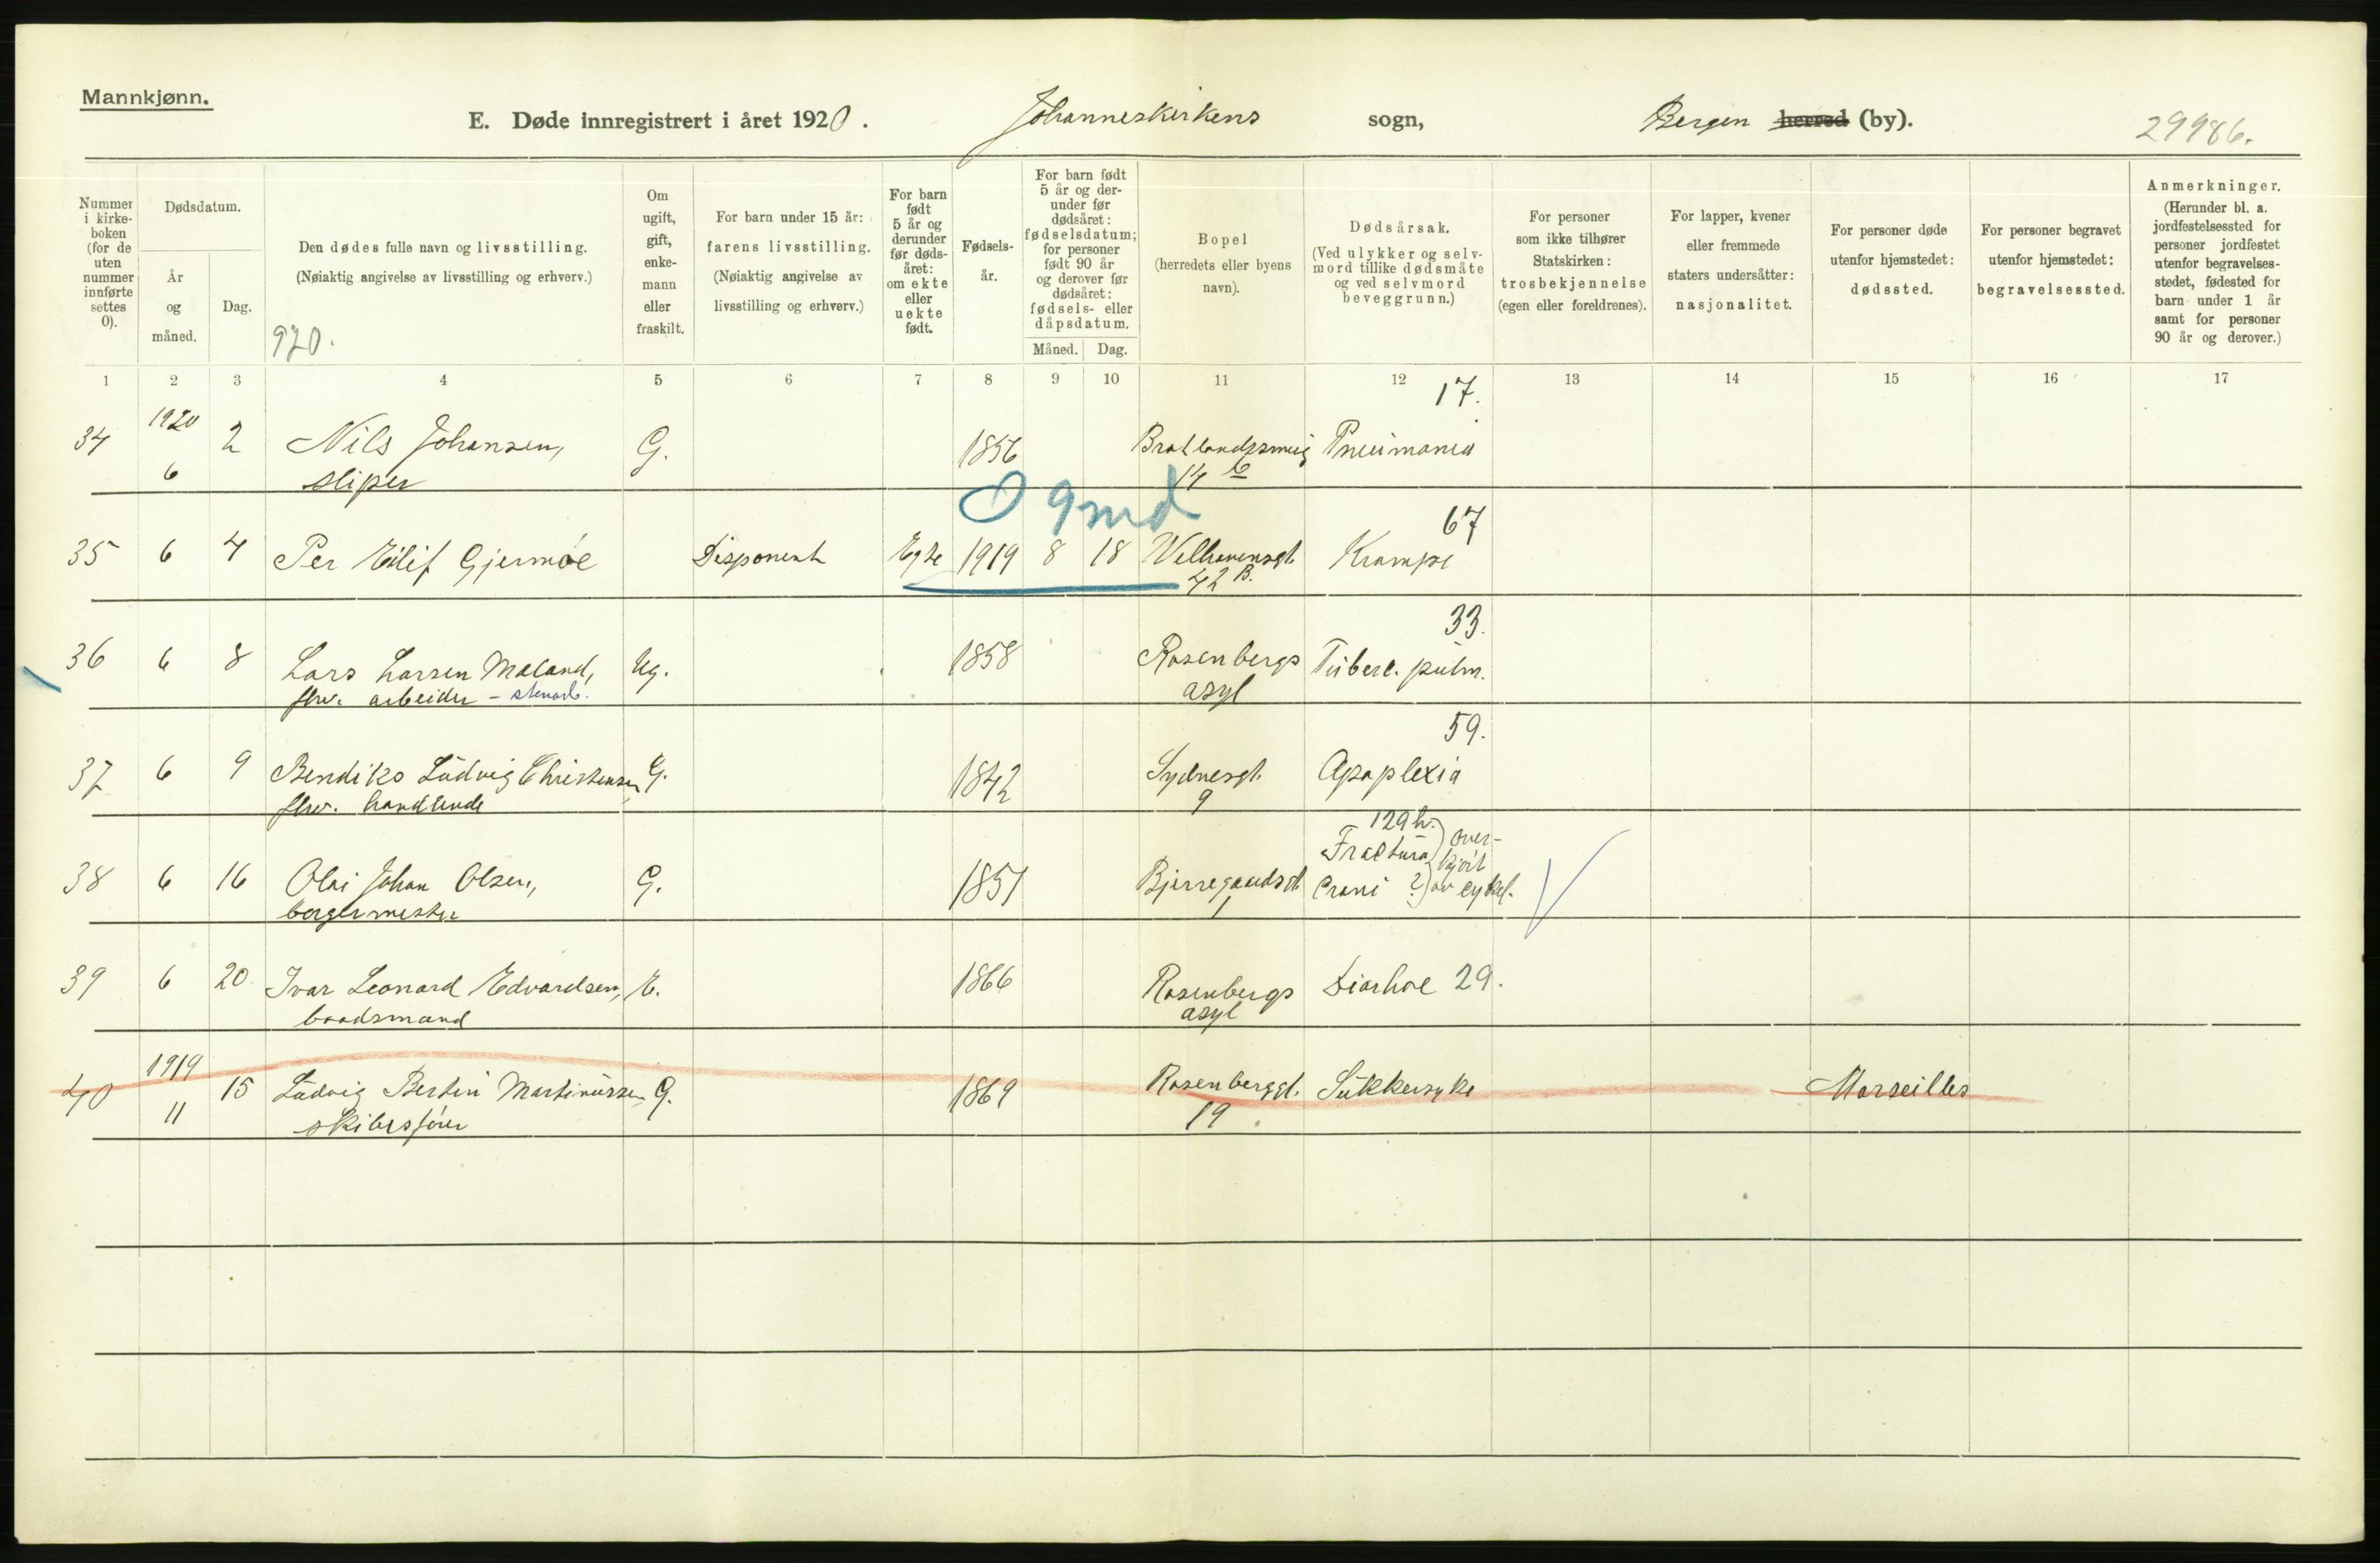 Mannkjønn.
E. Døde innregistrert i året 1920. Johanneskirkens sogn, Bergen herred (by). 29986.
Nummer i kirkeboken (for de uten nummer innførte settes 0).
Dødsdatum.
År og måned.
Dag.
Den dødes fulle navn og livsstilling.
(Nøiaktig angivelse av livsstilling og erhverv.)
920.
Om ugift, gift, enkemann eller fraskilt.
For barn under 15 år:
farens livsstilling.
(Nøiaktig angivelse av livsstilling og erhverv.)
For barn født 5 år og derunder før dødsåret: om ekte eller uekte født.
Fødselsår.
For barn født 5 år og derunder før dødsåret: fødselsdatum; for personer født 90 år og derover før dødsåret: fødsels- eller dåpsdatum.
Måned. Dag.
Bopel
(herredets eller byens navn).
Dødsårsak.
(Ved ulykker og selvmord tillike dødsmåte og ved selvmord beveggrunn.)
For personer som ikke tilhører Statskirken: trosbekjennelse (egen eller foreldrenes).
For lapper, kvener eller fremmede staters undersåtter: nasjonalitet.
For personer døde utenfor hjemstedet: dødssted.
For personer begravet utenfor hjemstedet: begravelsessted.
Anmerkninger.
(Herunder bl. a. jordfestelsessted for personer jordfestet utenfor begravelsesstedet, fødested for barn under 1 år samt for personer 90 år og derover.)
1 2 3 4 5 6 7 8 9 10 11 12 13 14 15 16 17
17.
1920
34 6 2 Nils Johansen, G. 1856 Pneumonia
sliper 14 b
0 9 md
67
35 6 4 Per Eilif Gjermoe Disponent Egte 1919 8 18 Welhavensgt. Krampe
42 B.
33.
36 6 8 Lars Larsen Møland, Ug. 1858 Rosenbergs Tuberc. pulm.
fhv. arbeider - stenarb. asyl
59.
37 6 9 Bendiks Ludvig Christensen, G. 1842 Sydnesgt. Apoplexia
fhv. handlende 9
129 h.
38 6 16 Olai Johan Olsen, G. 1851 Bjerregaardsgt. Fractura Crani ? overkjørt av cykel.
borgermester 1
39 6 20 Ivar Leonard Edvardsen, E. 1866 Rosenbergs Diarhoe 29.
baadsmand asyl
1919
40 11 15 Ludvig Bertin Martinussen, G. 1869 Rosenberggt. Sukkersyke Marseilles
skibsfører 19